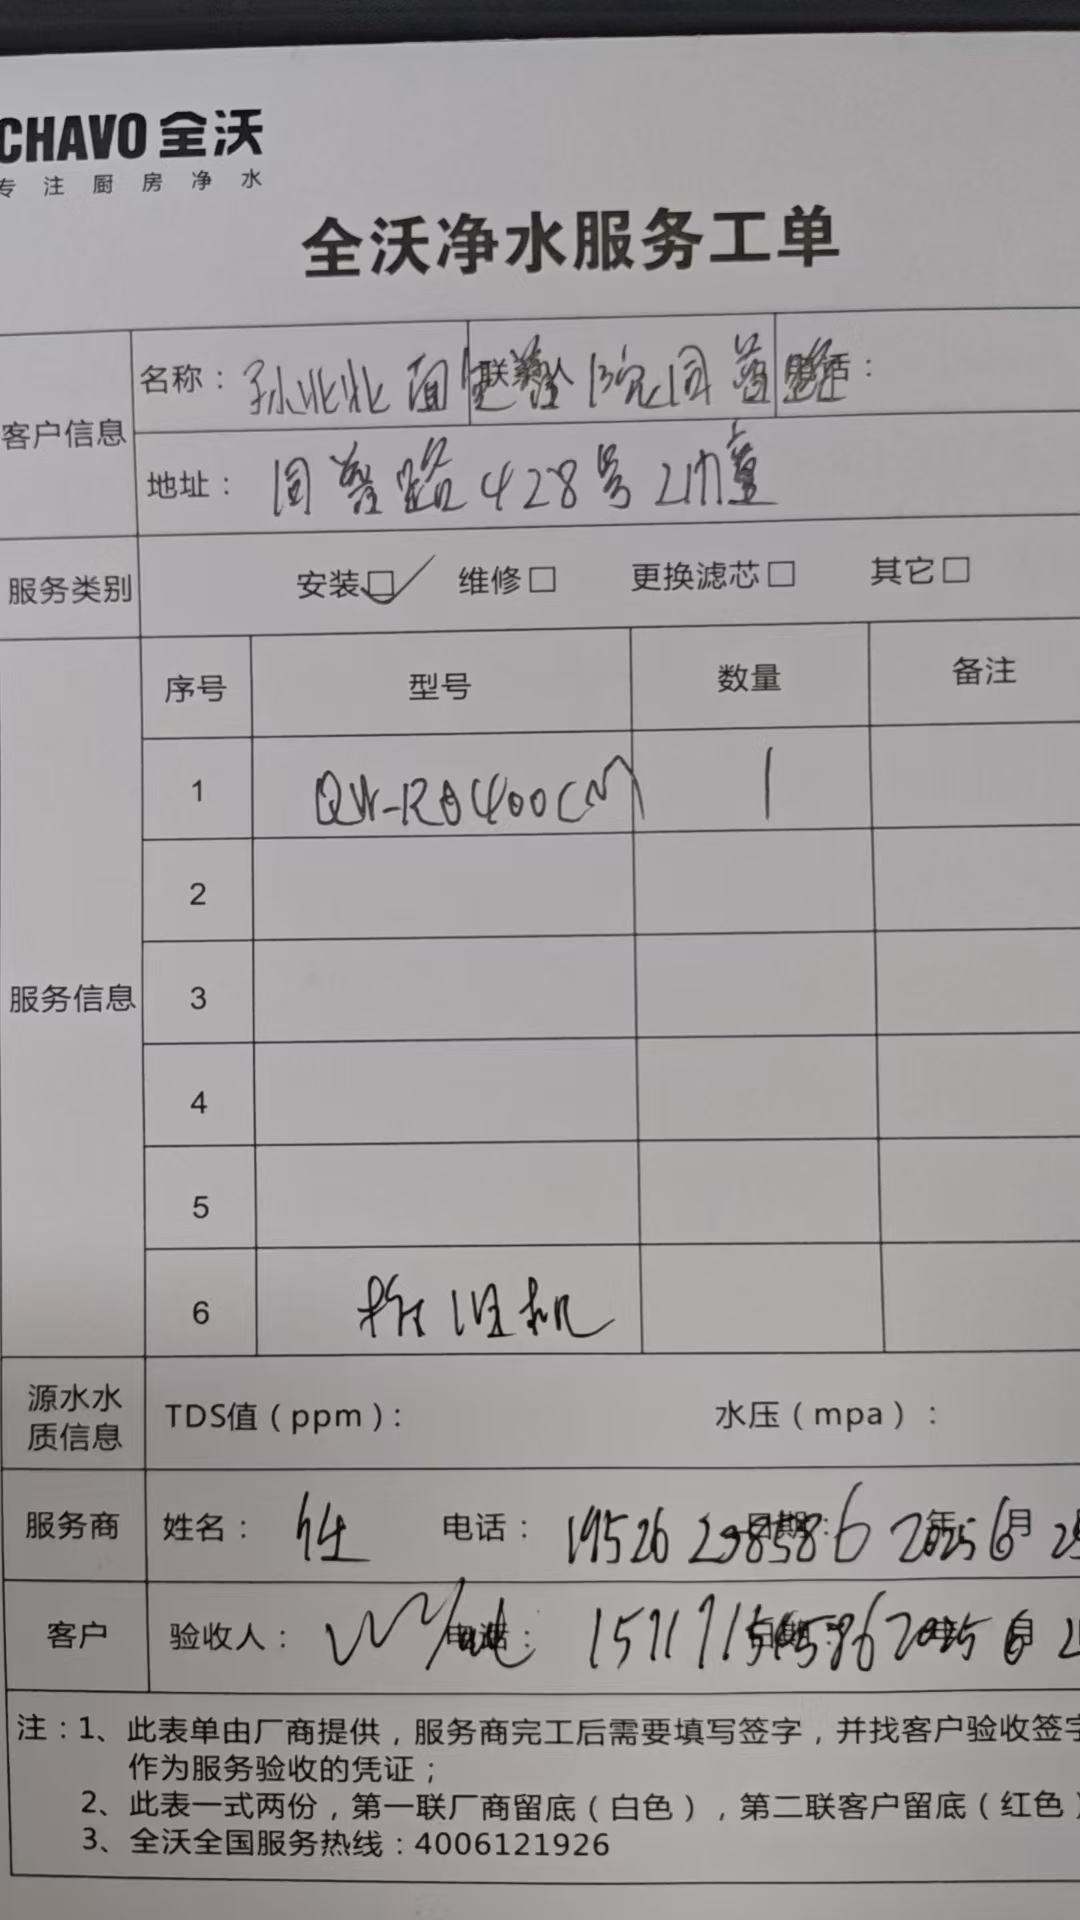 CHAVO 全沃
专注厨房净水
全沃净水服务工单
客户信息
名称： 孙北北面 联系人 同普 电话：
地址： 同普路428号
服务类别 安装□✓ 维修□ 更换滤芯□ 其它□
服务信息
序号 型号 数量 备注
1 QW-RO400CM 1
2
3
4
5
6 拆旧机
源水水质信息 TDS值（ppm）: 水压（mpa）:
服务商 姓名： 任 电话： 日期： 2025年6月
客户 验收人： 电话： 日期： 2025年6月
注：1、此表单由厂商提供，服务商完工后需要填写签字，并找客户验收签字
作为服务验收的凭证；
2、此表一式两份，第一联厂商留底（白色），第二联客户留底（红色）
3、全沃全国服务热线：4006121926